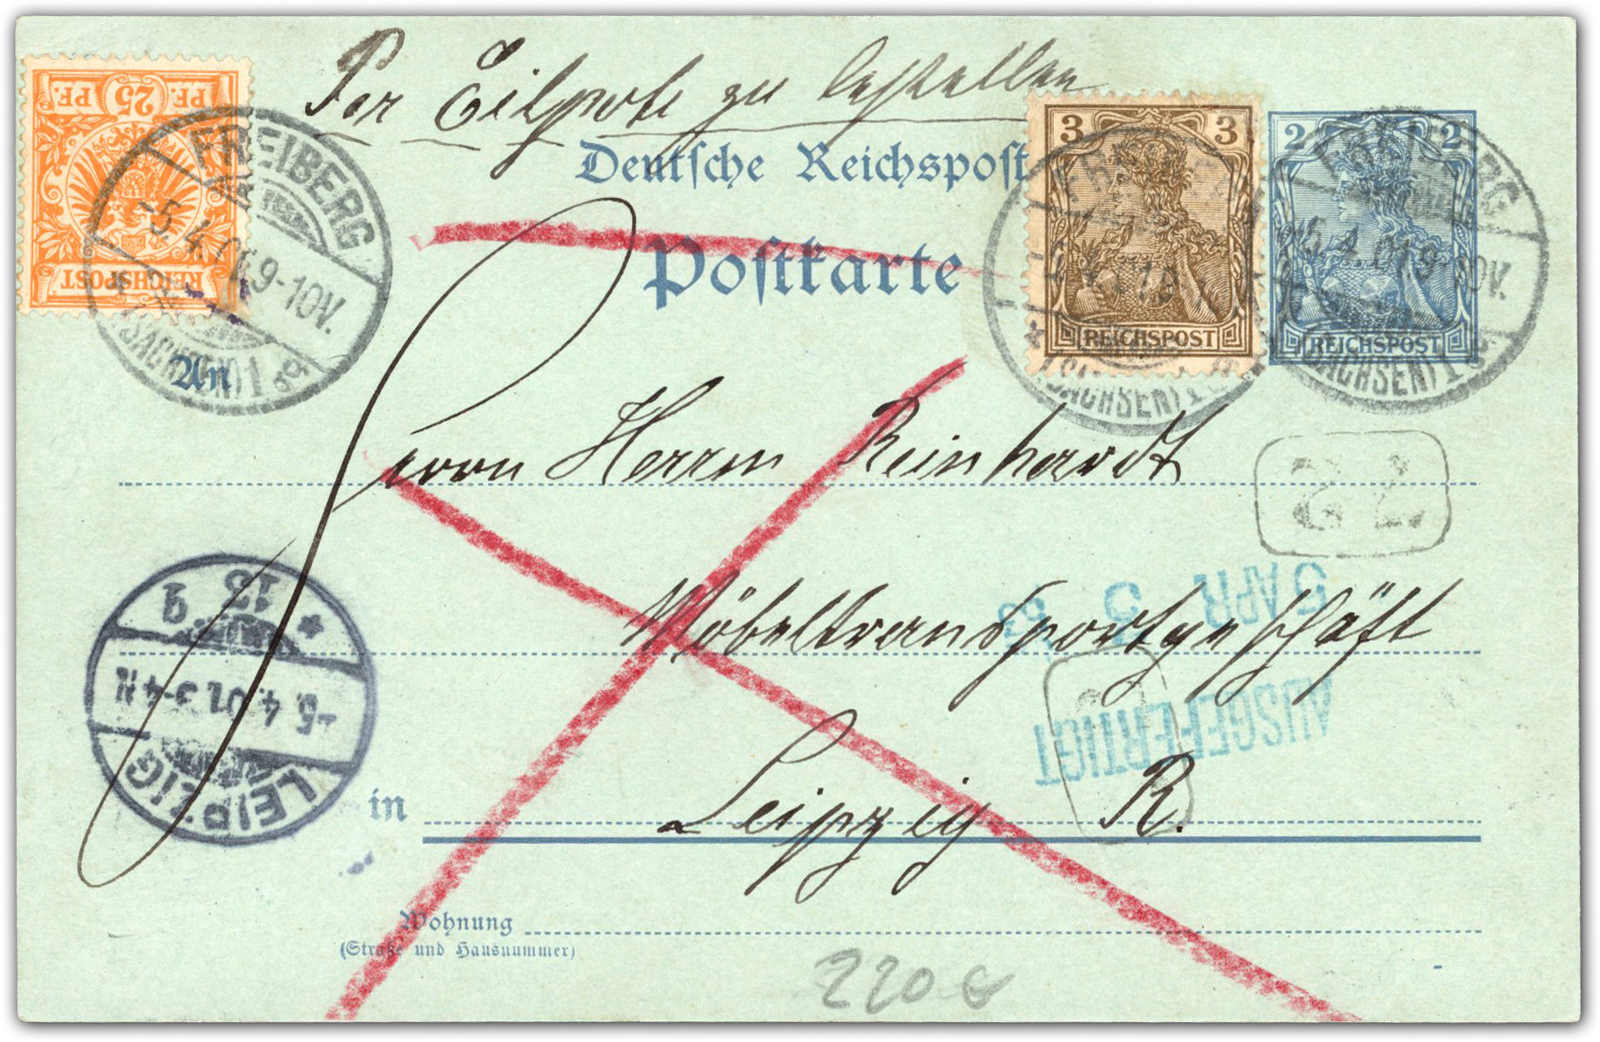 Per Eilpost zu bestellen
Deutsche Reichspost
Postkarte
PF. 25 PF.
REICHSPOST
3 3
REICHSPOST
2 2
REICHSPOST
FREIBERG
-5.4.01.9-10V.
(SACHSEN) 1
FREIBERG
(SACHSEN) 1
-5.4.01.9-10V.
(SACHSEN) 1
An
Herrn Reinhardt
Möbeltransportgeschäft
5 APR
AUSGEFERTIGT
LEIPZIG
-5.4.01.3-4N
13
*
in Leipzig R.
Wohnung
(Straße und Hausnummer)
220